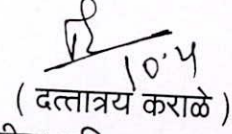 10.4
( दत्तात्रय कराळे )